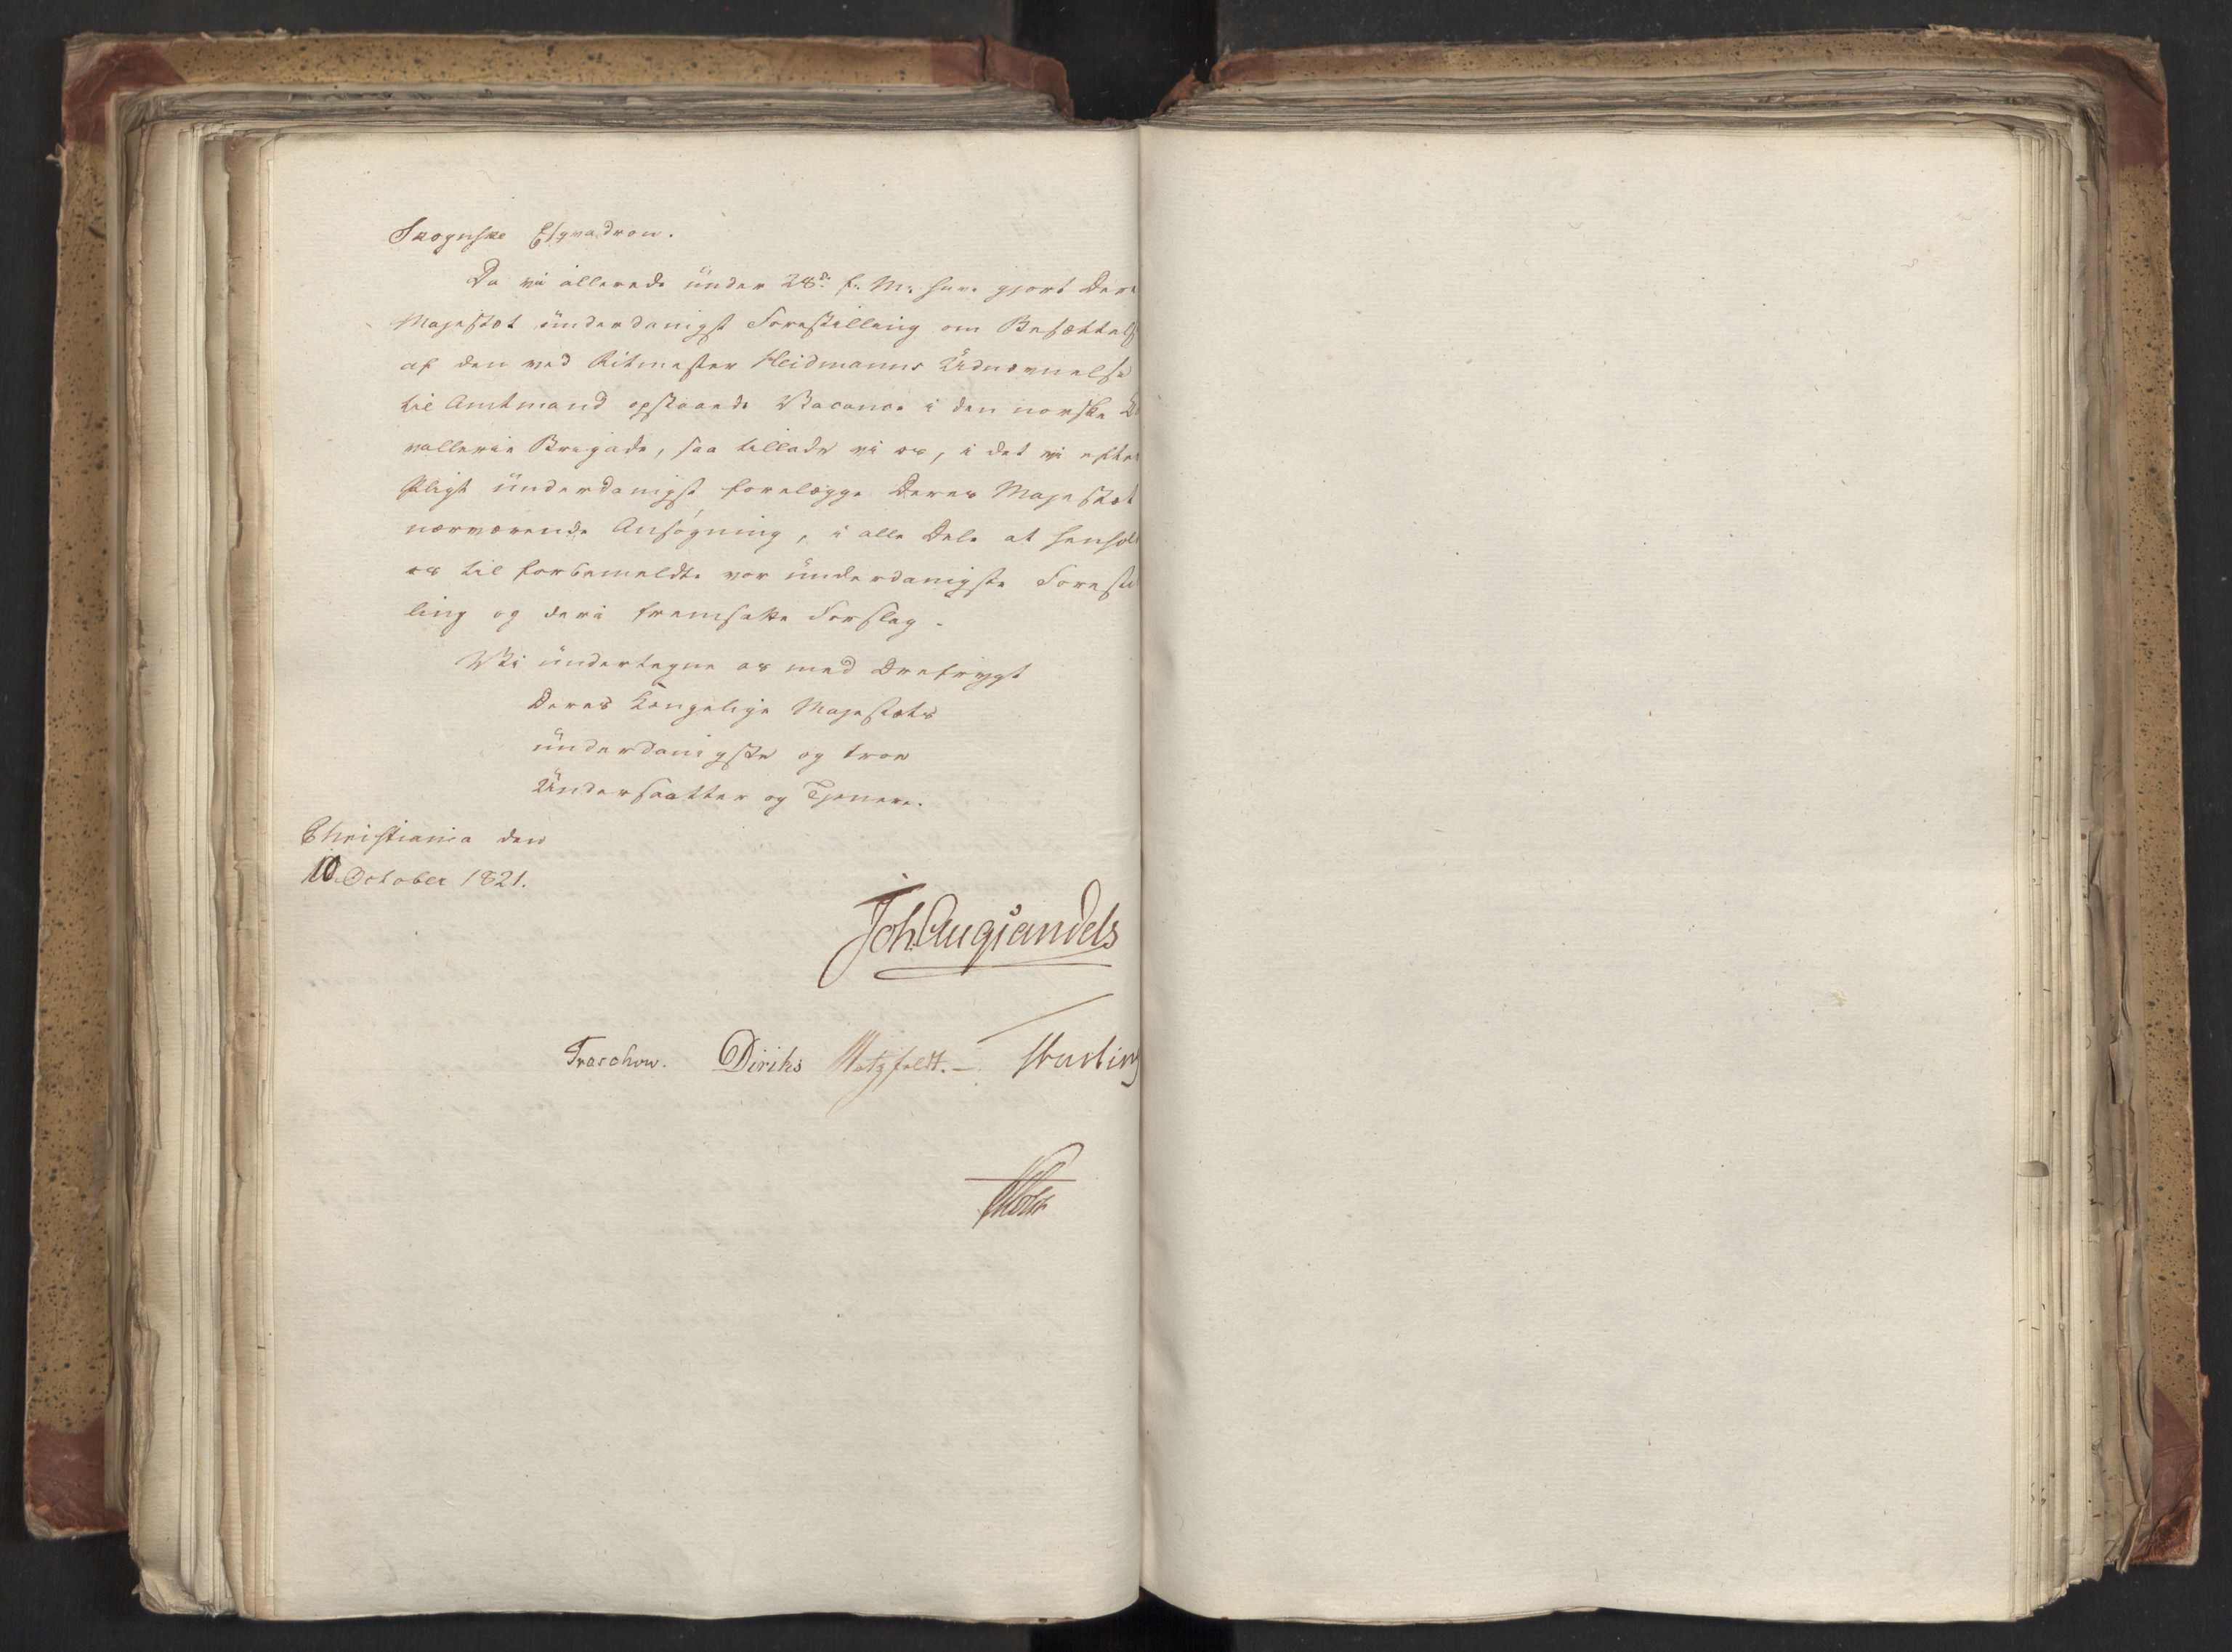 Skognske Esqvadron.
Da vi allerede under 28d: f: M: have gjort Dere
Majestæt underdanigst Forestilling om Besættels
af den ved Ritmester Heidmanns Udnævnelse
til Amtmand opstaaede Vacance i den norske Ca
vallerie Brigade, saa tillade vi os, i det vi efter
Pligt underdanigst forelægge Deres Majestæt
nærværende Ansøgning, i alle Dele at henhold
os til forbemeldte vor underdanigste Forestil
ling og deri fremsatte Forslag.
Vi undertegne os med Ærefrygt
Deres Kongelige Majestæts
underdanigste og troe
Undersaatter og Tjenere.
Christiania den
10 October 1821.
Joh. Aug Sandels
Treschow. Diriks Motzfeldt. — Fasting
Holst